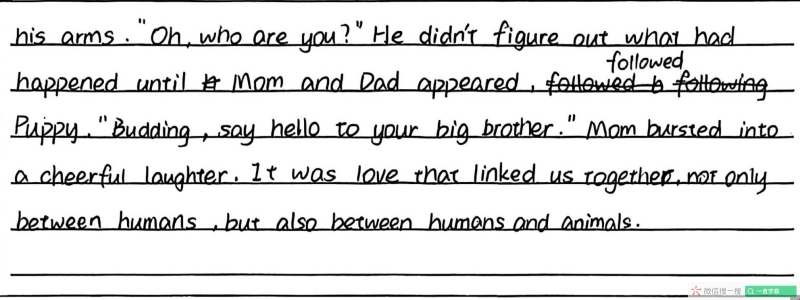 his arms. "Oh, who are you?" He didn't figure out what had
followed
happened until Mom and Dad appeared, followed b following
Puppy. "Budding, say hello to your big brother." Mom bursted into
a cheerful laughter. It was love that linked us together, not only
between humans, but also between humans and animals.
微信搜一搜 一直学酷